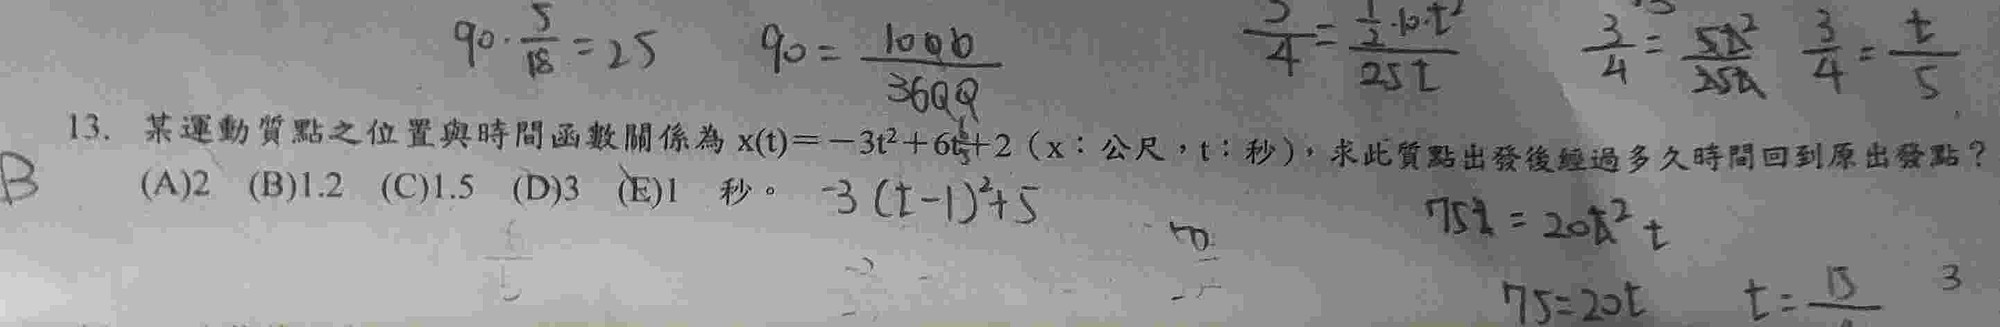 90·5/18=25 90=1000/3600 3/4=½·10·t²/25t 3/4=5t²/25t 3/4=t/5
13. 某運動質點之位置與時間函數關係為 x(t)=-3t²+6t+2（x：公尺，t：秒），求此質點出發後經過多久時間回到原出發點？
B (A)2 (B)1.2 (C)1.5 (D)3 (E)1 秒。 -3(t-1)²+5
75t=20t² t
75=20t t=15/ 3